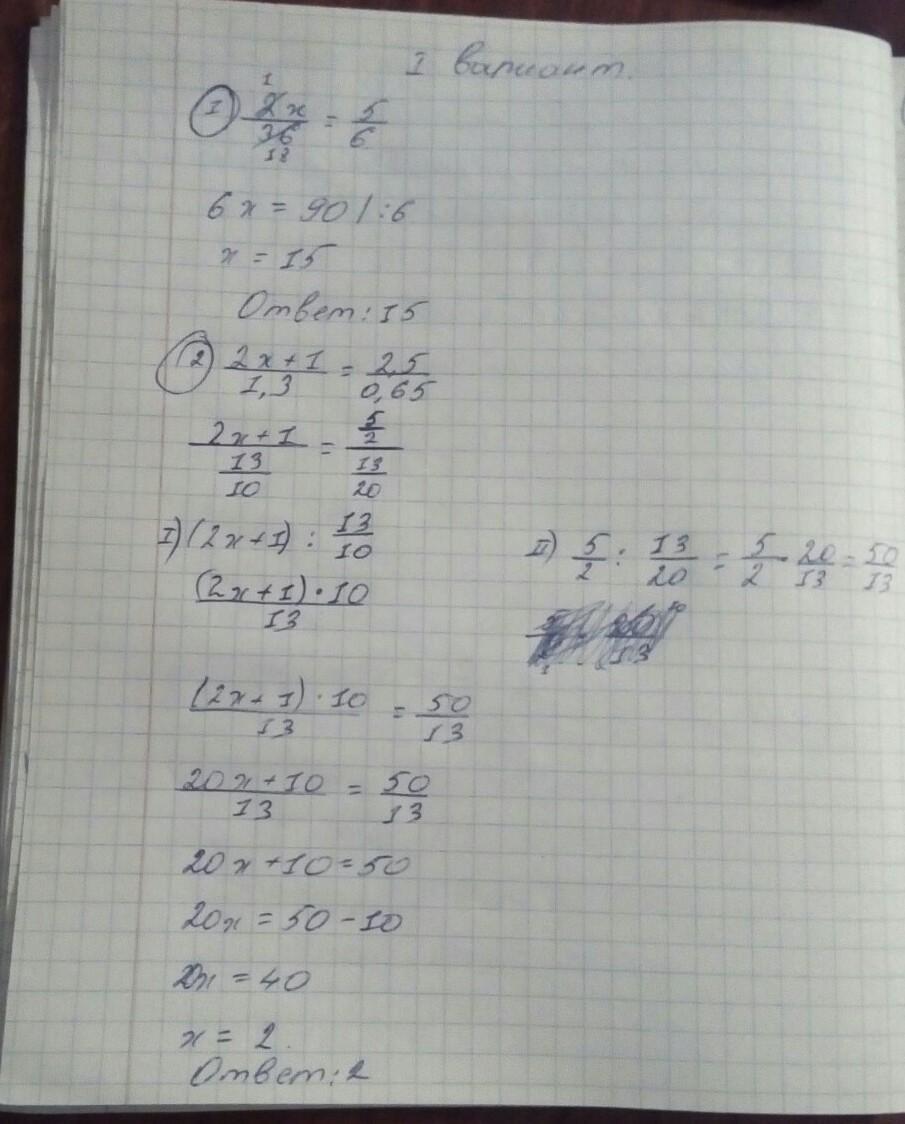 I вариант.
① 2x/36 = 5/6
1
18
6x = 90 | :6
x = 15
Ответ: 15
② (2x+1)/1,3 = 2,5/0,65
(2x+1)/(13/10) = (5/2)/(13/20)
I) (2x+1) : 13/10
((2x+1)·10)/13
II) 5/2 : 13/20 = 5/2 · 20/13 = 50/13
((2x+1)·10)/13 = 50/13
(20x+10)/13 = 50/13
20x+10=50
20x = 50-10
20x = 40
x = 2.
Ответ: 2